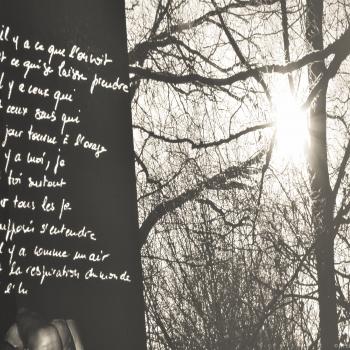 il y a ce que l'on voit
ce qui se laisse prendre
y a ceux qui
ceux sans qui
jour tourne à l'orage
y a moi, je
toi surtout
tous les je
s'entendre
y a comme un air
la respiration du monde